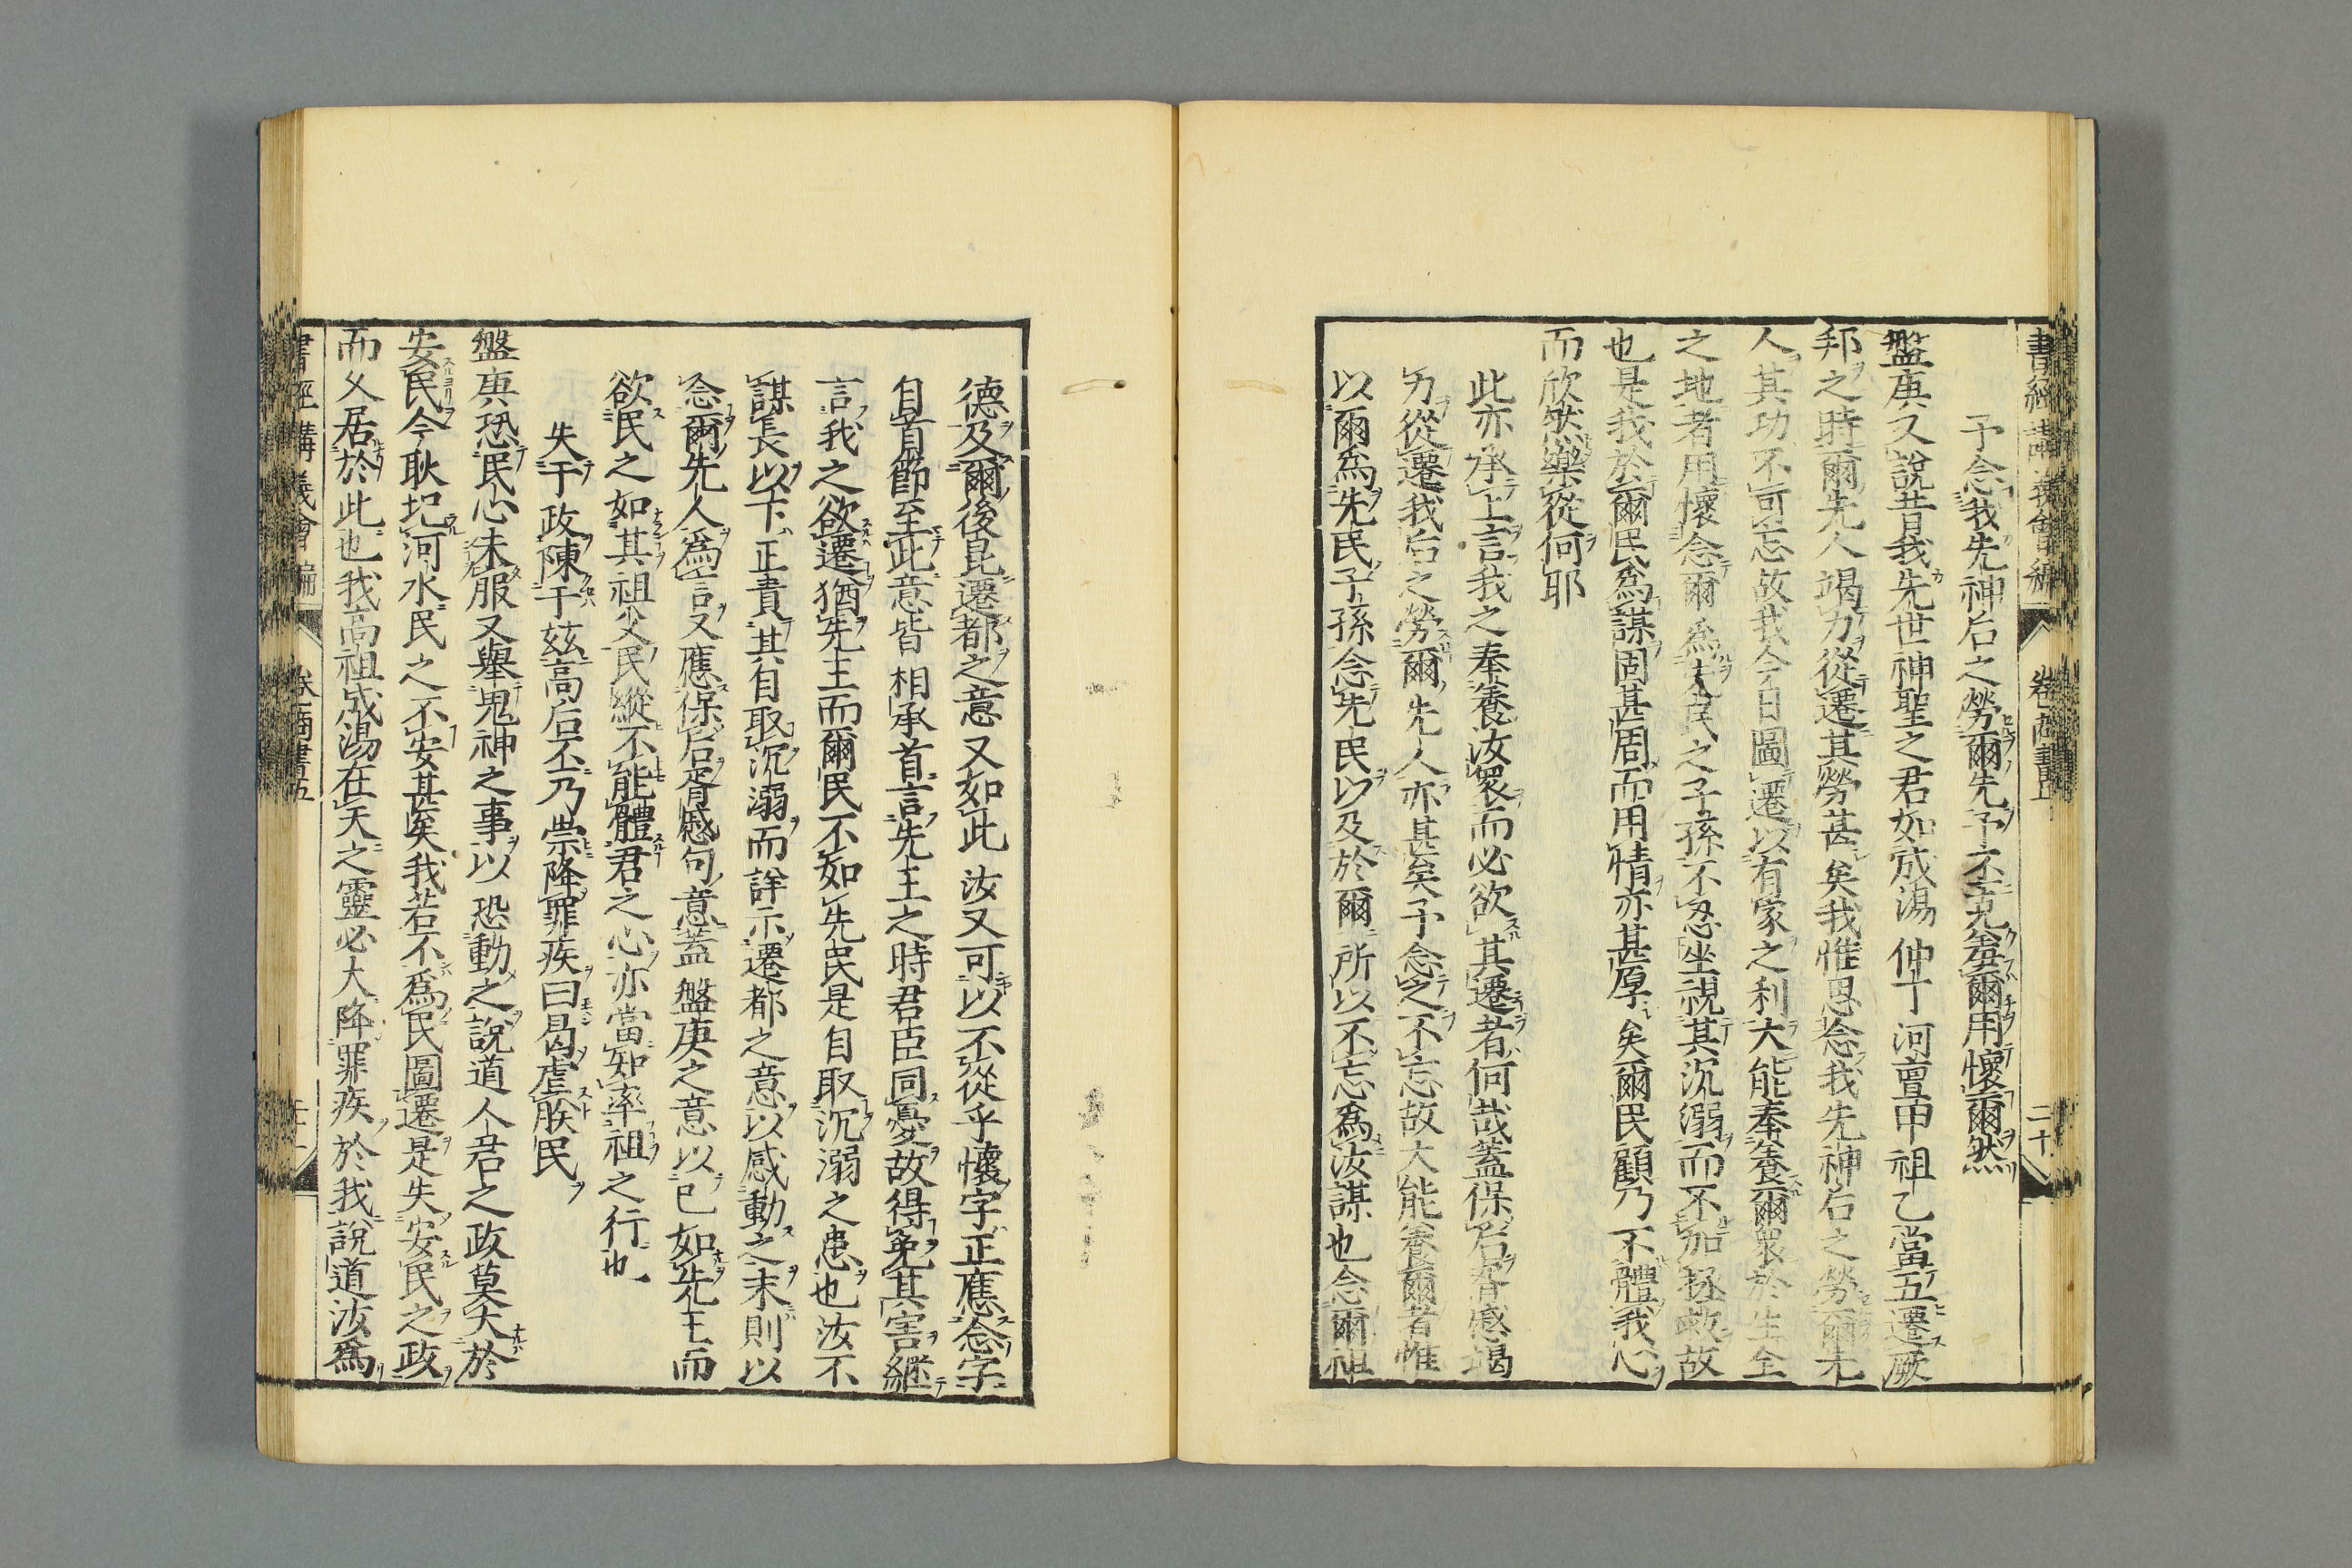 書經講義會編
卷 商書五
二十
予念我先神后之勞爾先予丕克羞爾用懷爾然
盤庚又說昔我先世神聖之君如成湯仲丁河亶甲祖乙當五遷厥
邦之時爾先人竭力從遷其勞甚矣我惟思念我先神后之勞爾先
人其功不可忘故我今日圖遷以有家之利大能奉養爾衆於生全
之地者用懷念爾爲先民之子孫不忍坐視其沉溺而不加拯救故
也是我於爾民爲謀固甚周而用情亦甚厚矣爾民顧乃不體我心
而欣然樂從何耶
此亦承上言我之奉養汝衆而必欲其遷者何哉蓋保后胥慼竭
力從遷我后之勞爾先人亦甚矣予念之不忘故大能養爾者惟
以爾爲先民子孫念先民以及於爾所以不忘爲汝謀也念爾祖
德及爾後昆遷都之意又如此汝又可以不從乎懷字正應念字
自首節至此意皆相承首言先王之時君臣同憂故得免其害継
言我之欲遷猶先王而爾民不如先民是自取沉溺之患也汝不
謀長以下正責其自取沉溺而詳示遷都之意以感動之末則以
念爾先人爲言又應保后胥慼句意蓋盤庚之意以已如先王而
欲民之如其祖父民縱不能體君之心亦當如率祖之行也
失于政陳于玆高后丕乃崇降罪疾曰曷虐朕民
盤庚恐民心未服又舉鬼神之事以恐動之說道人君之政莫大於
安民今耿圮河水民之不安甚矣我若不爲民圖遷是失安民之政
而久居於此也我高祖成湯在天之靈必大降罪疾於我說道汝爲
書經講義會編
卷 商書五
二十一